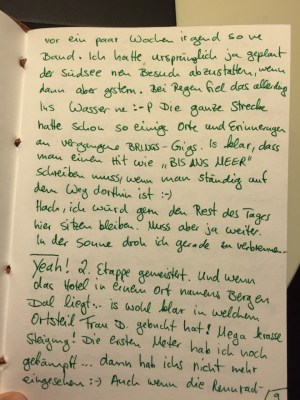 vor ein paar Wochen irgend so ne
Band. Ich hatte ursprünglich ja geplant
der Südsee nen Besuch abzustatten, wenn
dann aber gestern. Bei Regen fiel das allerdings
ins Wasser ne :-P Die ganze Strecke
hatte schon so einige Orte und Erinnerungen
an vergangene BRINGS-Gigs. Is klar, dass
man einen Hit wie „BIS ANS MEER"
schreiben muss, wenn man ständig auf
dem Weg dorthin ist :-)
Hach, ich würd gern den Rest des Tages
hier sitzen bleiben. Muss aber ja weiter.
In der Sonne droh ich gerade zu verbrennen.
Yeah! 2. Etappe gemeistert. Und wenn
das Hotel in einem Ort namens Bergen
Dal liegt... is wohl klar in welchem
Ortsteil Frau D. gebucht hat! Mega krasse
Steigung! Die ersten Meter hab ich noch
gekämpft... dann hab ichs nicht mehr
eingesehen :-) Auch wenn die Rennrad-
9